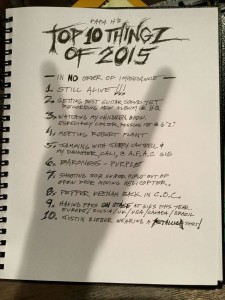 PAPA H'S
TOP 10 THINGZ
OF 2015
IN NO ORDER OF IMPORTANCE
1. STILL ALIVE!!!
2. GETTING BEST GUITAR SOUND YET
RECORDING NEW ALBUM
3. WATCHING MY CHILDREN GROW
ESPECIALLY
4. MEETING ROBERT PLANT
5. JAMMING WITH JERRY CANTRELL &
MY DAUGHTER, CALI, @ A.F.A.C GIG
6. BARONESS - PURPLE
7. SHOOTING OUT OF
OPEN DOOR MOVING HELICOPTER.
8. PEPPER KEENAN BACK IN C.O.C.
9. HAVING FANS ON STAGE AT GIGS THIS YEAR
EUROPE/RUSSIA/UK/USA/CANADA/BRAZIL
10. JUSTIN BIEBER WEARING A METALLICA SHIRT!